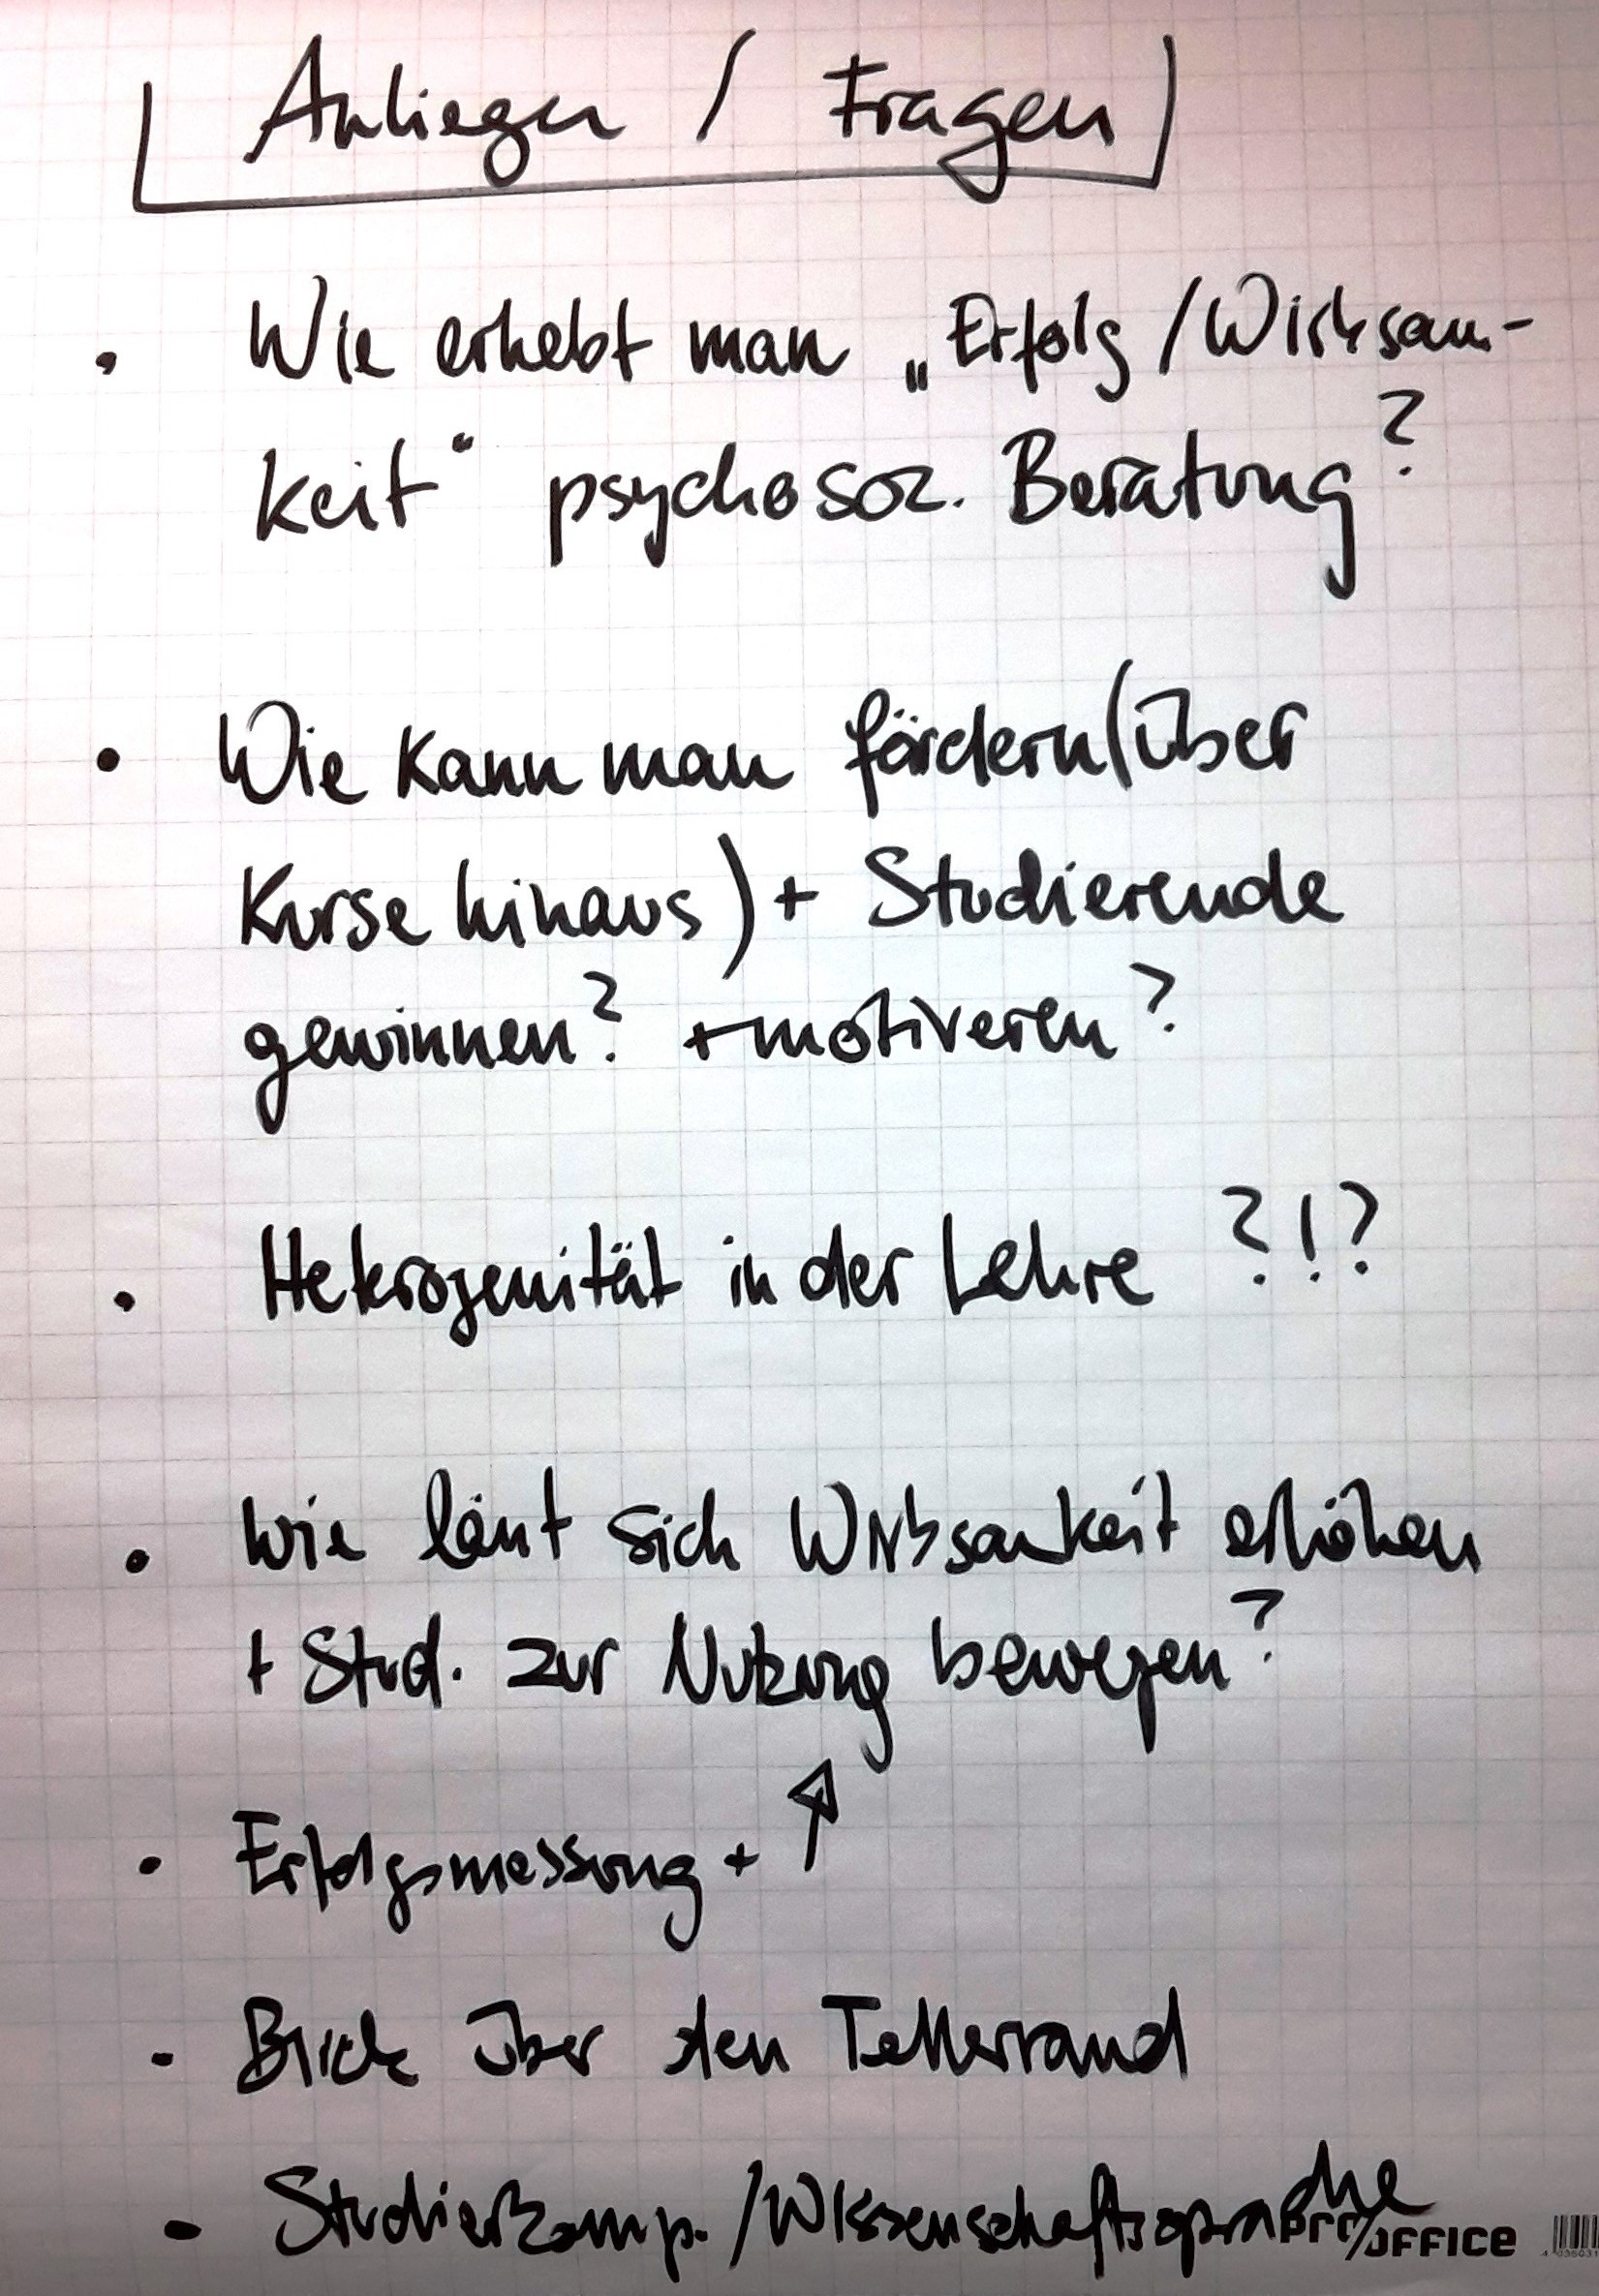 Anliegen / Fragen
• Wie erhebt man „Erfolg / Wirksam-
keit" psychosoz. Beratung?
• Wie kann man fördern (über
Kurse hinaus) + Studierende
gewinnen? + motivieren?
• Heterogenität in der Lehre ?!?
• Wie lässt sich Wirksamkeit erhöhen
+ Stud. zur Nutzung bewegen?
• Erfolgsmessung + ↑
- Blick über den Tellerrand
- Studierkomp. / Wissenschaftssprache
PRO/OFFICE